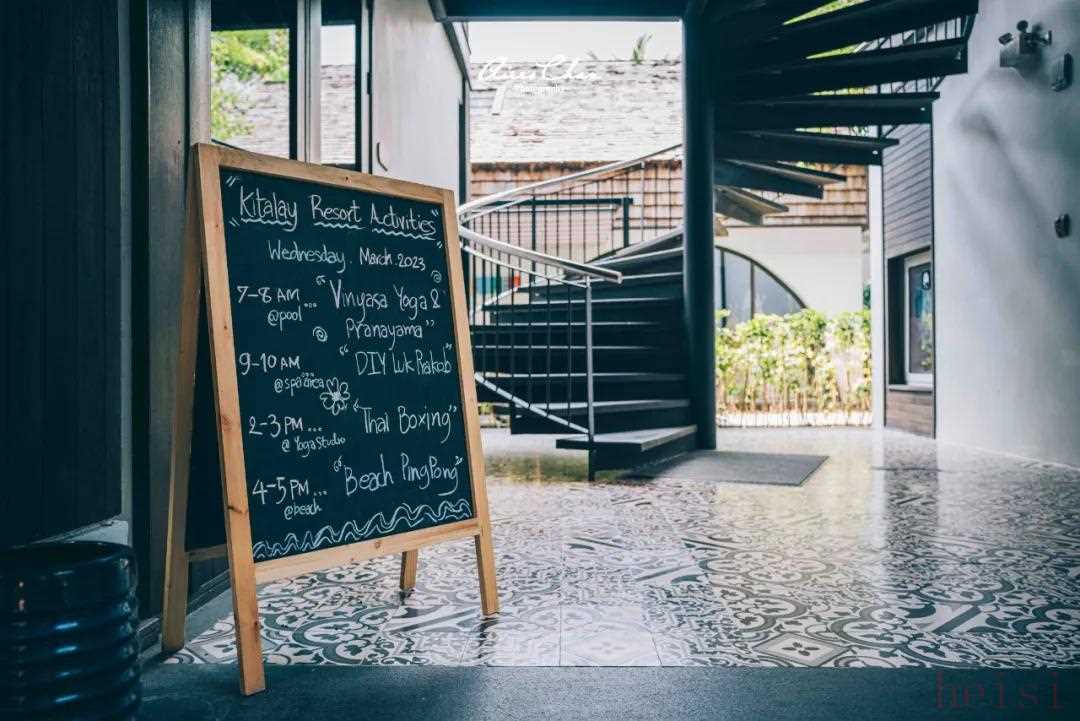 Photography
"Kitalay Resort Activities"
Wednesday. March. 2023
7-8 AM ... "Vinyasa Yoga &
@pool
Pranayama"
9-10 AM "DIY Luk Prakob"
@spa area
2-3 PM ... "Thai Boxing"
@Yoga Studio
4-5 PM ... "Beach PingPong"
@beach
heisi